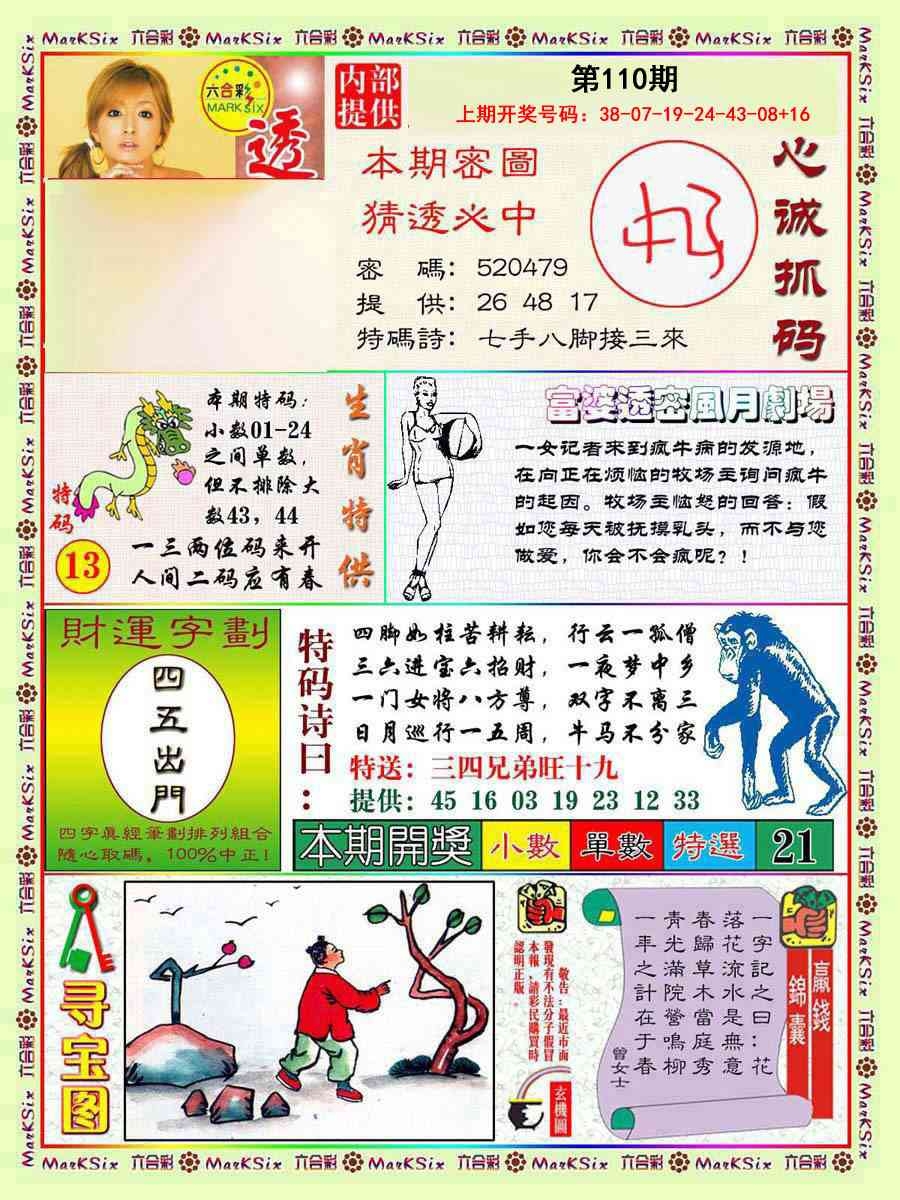 MarKSix 六合彩 MarKSix 六合彩 MarKSix 六合彩 MarKSix 六合彩 MarKSix 六合彩
六合彩
MARK SIX
透
内部
提供
第110期
上期开奖号码：38-07-19-24-43-08+16
本期密圖
猜透必中
密 碼：520479
提 供：26 48 17
特碼詩：七手八脚接三來
心诚抓码
本期特码：
小数01-24
之间单数，
但不排除大
数43，44
一三两位码来开
人间二码应有春
特码
13
生肖特供
富婆透密風月劇場
一女记者来到疯牛病的发源地，
在向正在烦恼的牧场主询问疯牛
的起因。牧场主恼怒的回答：假
如您每天被抚摸乳头，而不与您
做爱，你会不会疯呢？！
財運字劃
四五出門
四字真經筆劃排列組合
隨心取碼，100%中正！
特码诗曰：
四脚如柱苦耕耘，行云一孤僧
三六进宝六招财，一夜梦中乡
一门女将八方尊，双字不离三
日月巡行一五周，牛马不分家
特送：三四兄弟旺十九
提供：45 16 03 19 23 12 33
本期開獎 小數 單數 特選 21
寻宝图
敬告：最近市面
發現有不法分子假冒
本報，請彩民購買時
認明正版。
玄機圖
一字記之曰：花
落花流水是無意
春歸草木當庭秀
青光滿院鶯鳴柳
一年之計在于春
曾女士
贏錢
錦囊
MarKSix 六合彩 MarKSix 六合彩 MarKSix 六合彩 MarKSix 六合彩 MarKSix 六合彩